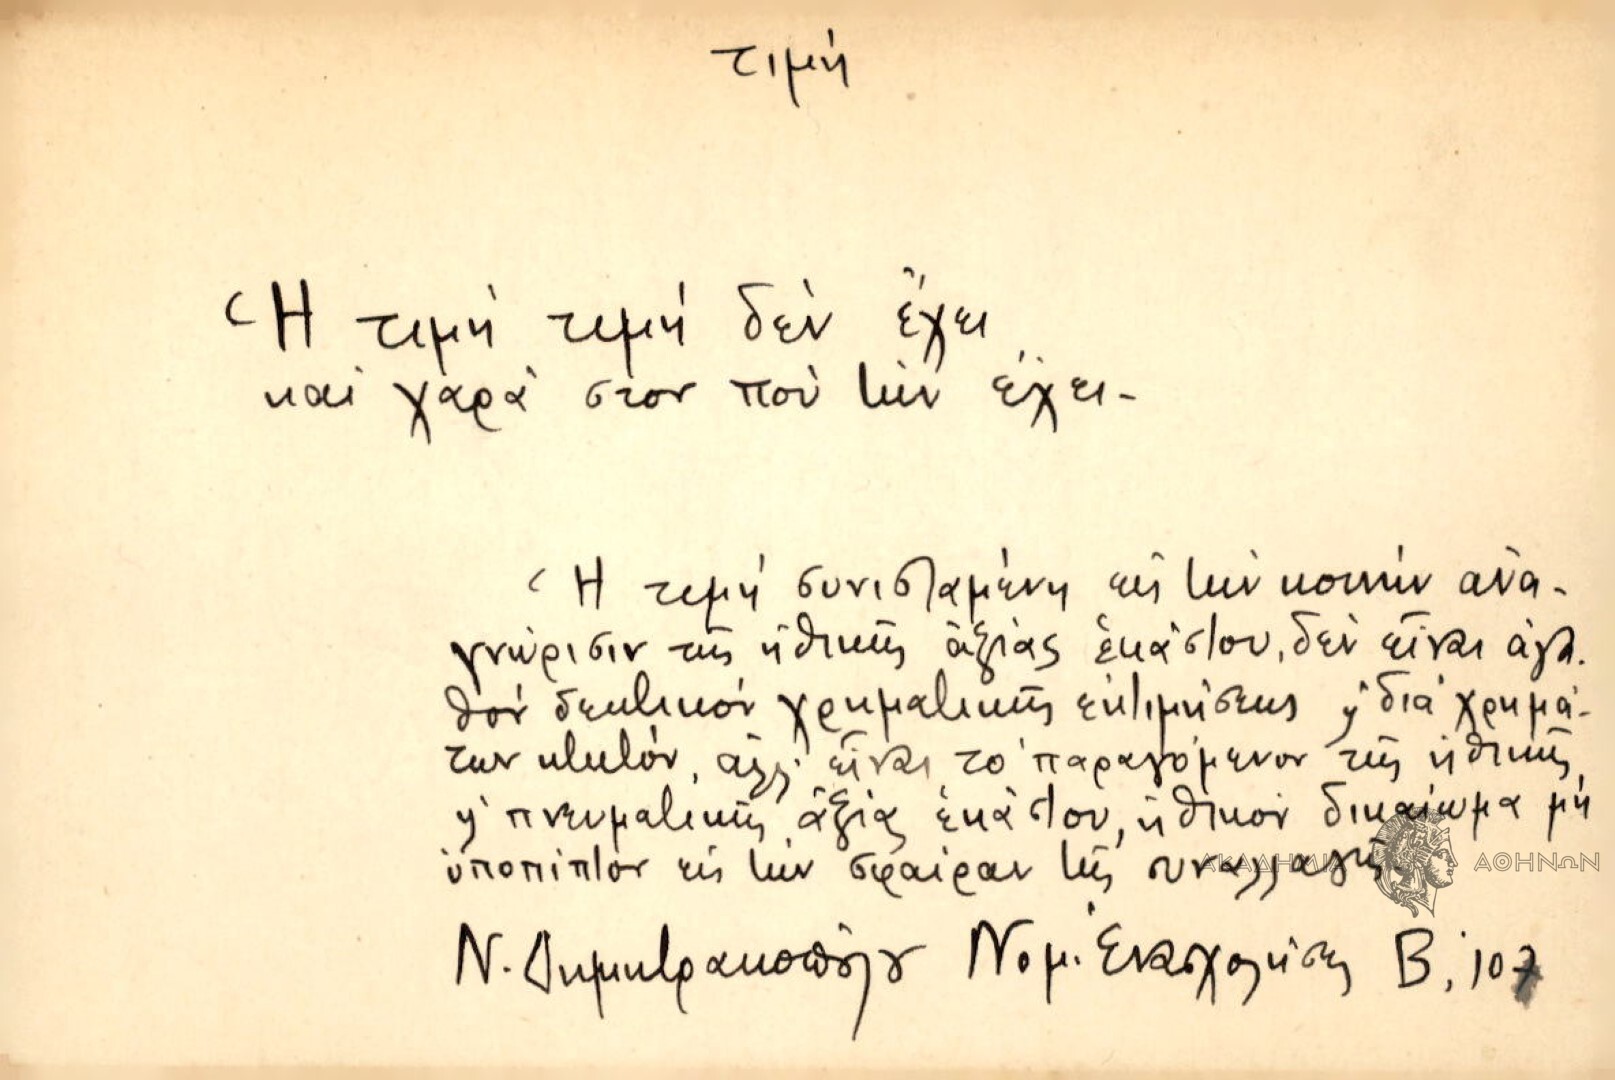 τιμή
Ἡ τιμή τιμή δέν ἔχει
καί χαρά στον πού τήν ἔχει-
Ἡ τιμή συνισταμένη εἰς τήν κοινήν ἀνα-
γνώρισιν τῆς ἠθικῆς ἀξίας ἑκάστου, δέν εἶναι ἀγα-
θόν δεκτικόν χρηματικῆς ἐκτιμήσεως ἤ διά χρημά-
των κτητόν, ἀλλ' εἶναι τό παραγόμενον τῆς ἠθικῆς
ἤ πνευματικῆς ἀξίας ἑκάστου, ἠθικόν δικαίωμα μή
ὑποπῖπτον εἰς τήν σφαῖραν τῆς συναλλαγῆς
Ν. Δημητρακοπούλου Νομ. Ἐνασχολήσεις Β, 107
ΑΚΑΔΗΜΙΑ ΑΘΗΝΩΝ